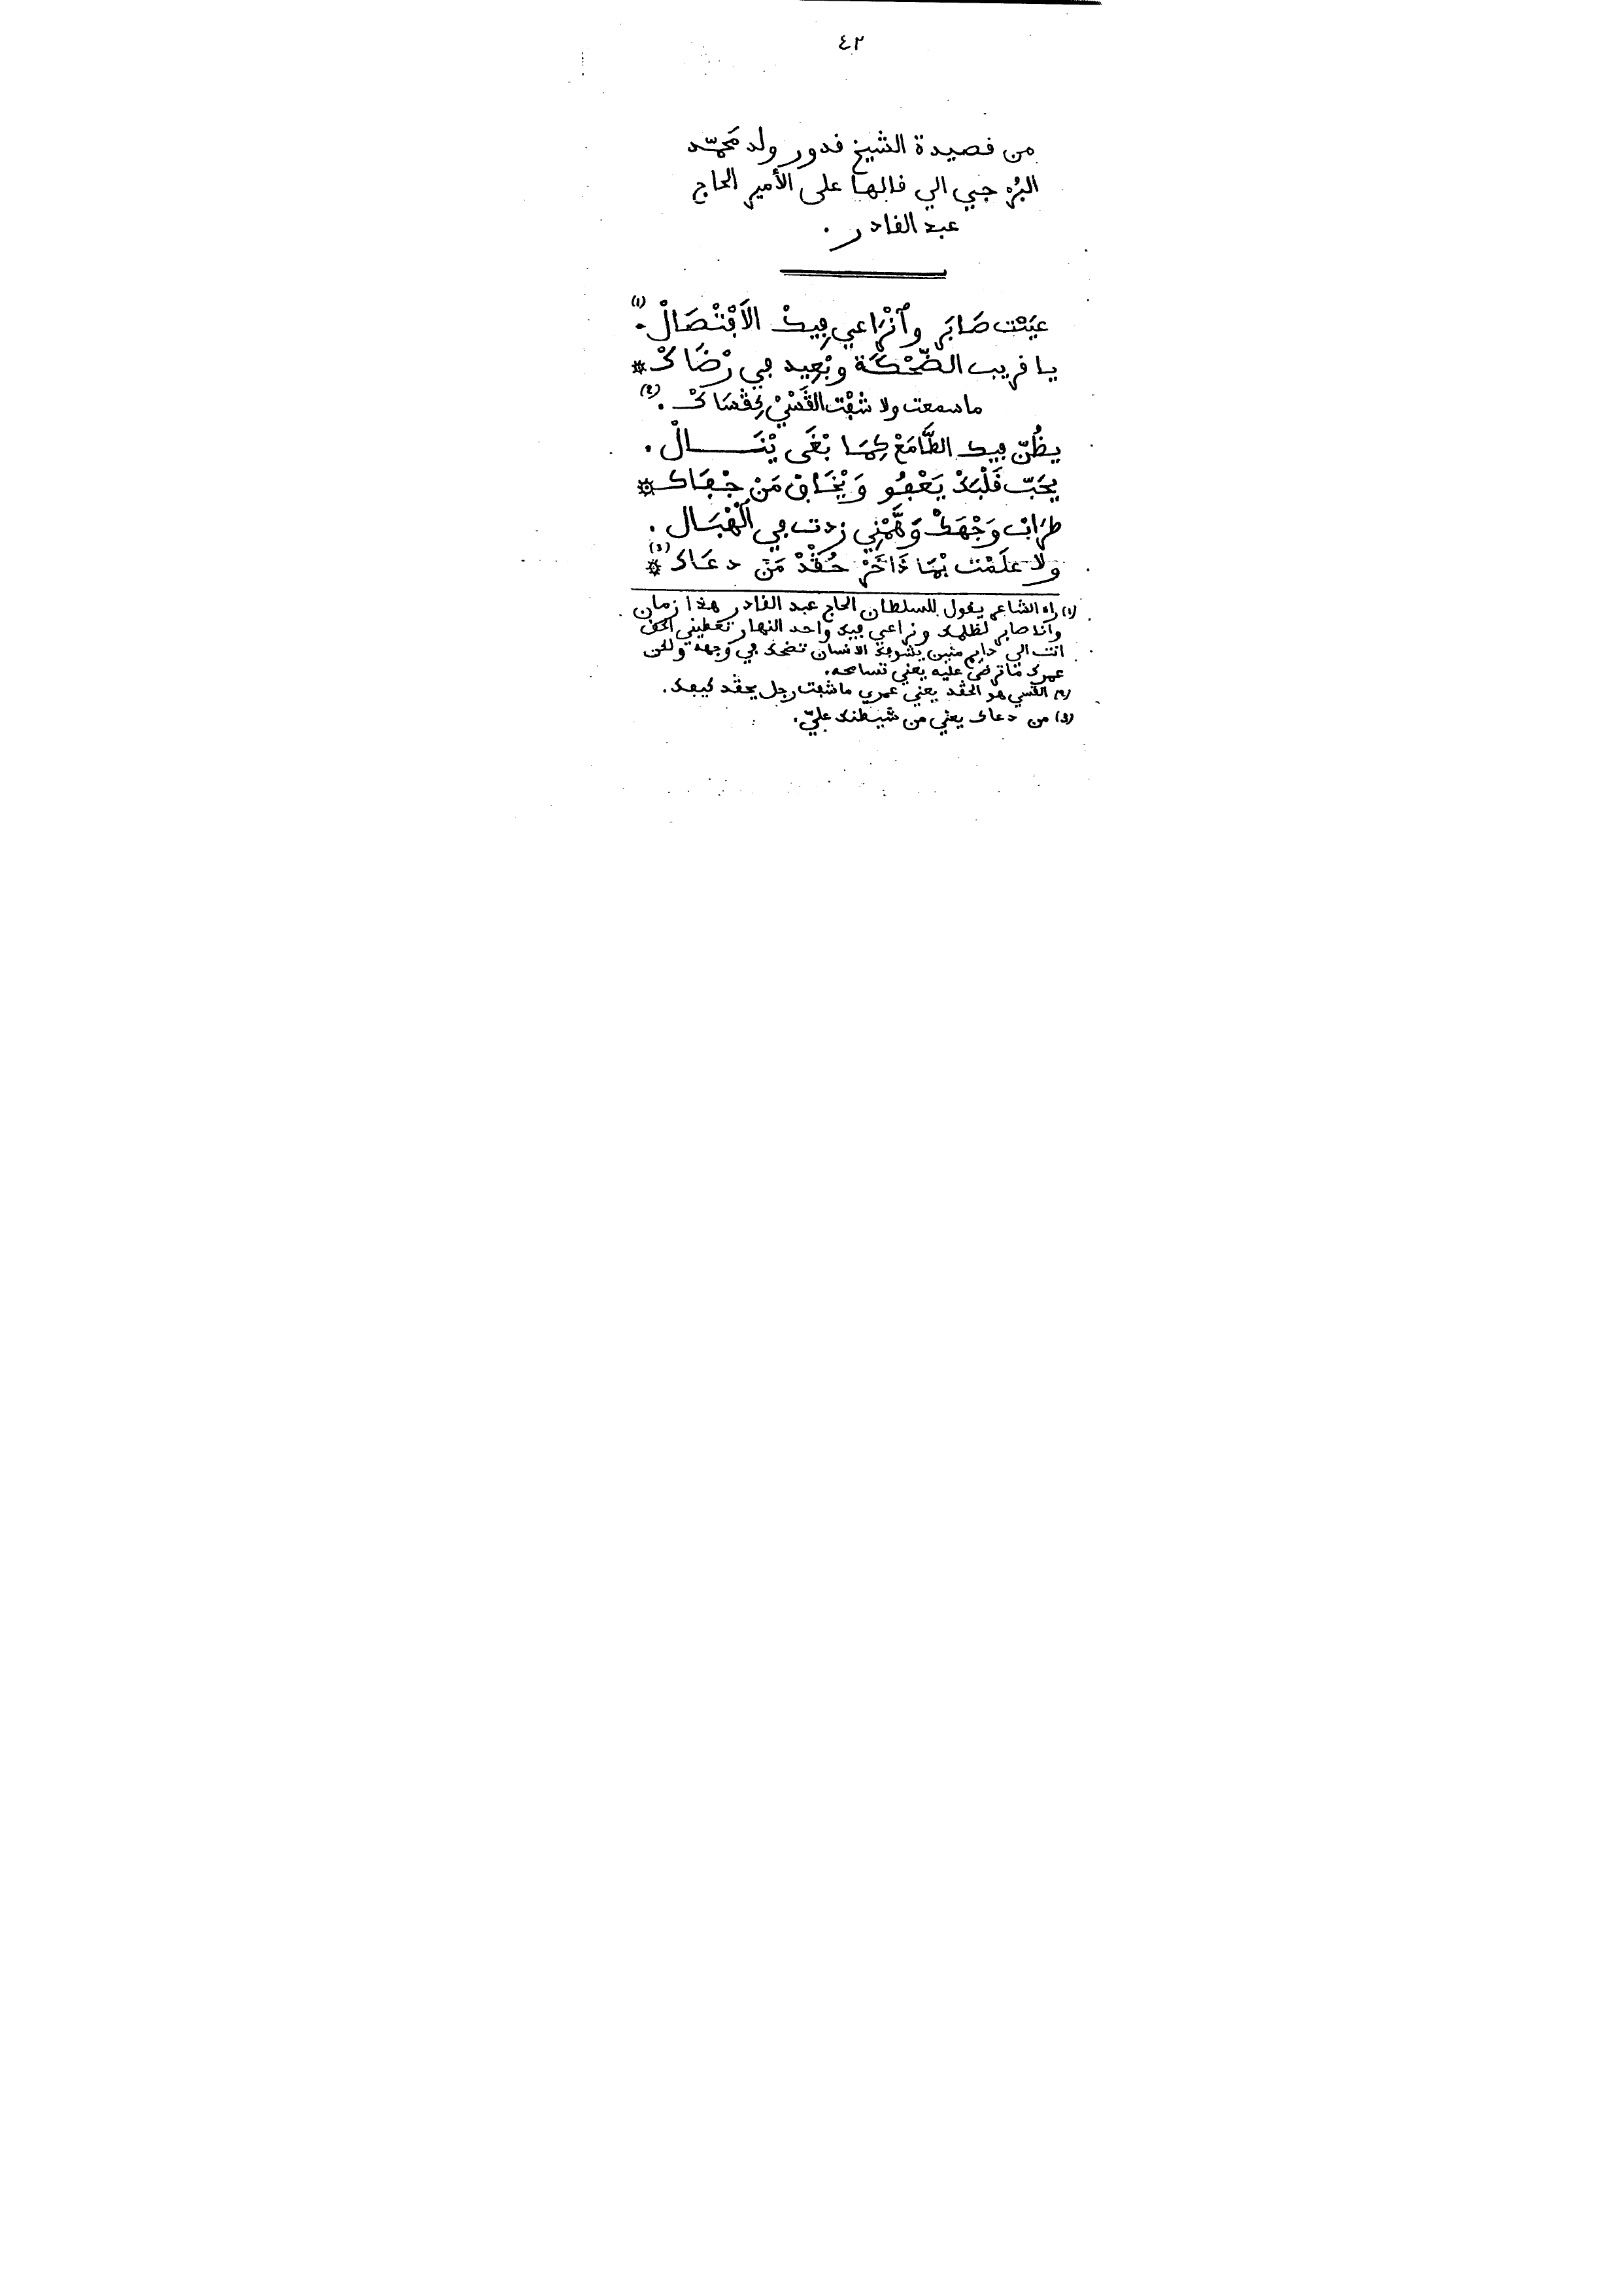 ٤٢
من فصيدة الشيخ فدور ولد محمّد
البُرْجي الي فالها على الأمير الحاج
عبد الفادر .
عيَيْت صَابَر وٱنْرَاعي ڢِيكْ الاَڢْتْصَالْ . (١)
يا فريب الضَّحْكَة وبْعِيد ڢي رْضَاكْ *
ما سمعت ولا شڢْت الڤَسْيْ كِڤْسَاكْ . (٢)
يظُنّ ڢيك الطَّامَعْ كِمَا بْغَى يْنَالْ .
يحَبّ فَلْبَكْ يَعْڢُو وَيْخَاڢ مَنْ جْڢَاك *
طرَاڢ وَجْهَكْ وَهَّمْنِي زدت ڢي الْهْبَال .
ولا علَمْت بْمَا ذَاخَرْ حُڤْدْ مَنْ دعَاك * (٣)
(١) راه الشاعر يفول للسلطان الحاج عبد الفادر هذا زمان
وانا صابر لظلمك ونراعي ڢيك واحد النهار تعطيني الحف
انت الي دايم منين يشوڢك الانسان تضحك ڢي وجهه ولكن
عمرك ما ترضى عليه يعني تسامحه.
(٢) الڤسي هو الحڤد يعني عمري ما شڢت رجل يحڤد كيڢك .
(٣) من دعاك يعني من شيطنك عليّ .